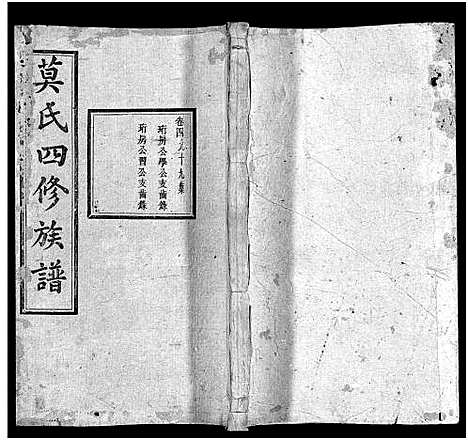 莫氏四修族譜
卷四之十九集
珩房公學公支齒錄
珩房公習公支齒錄